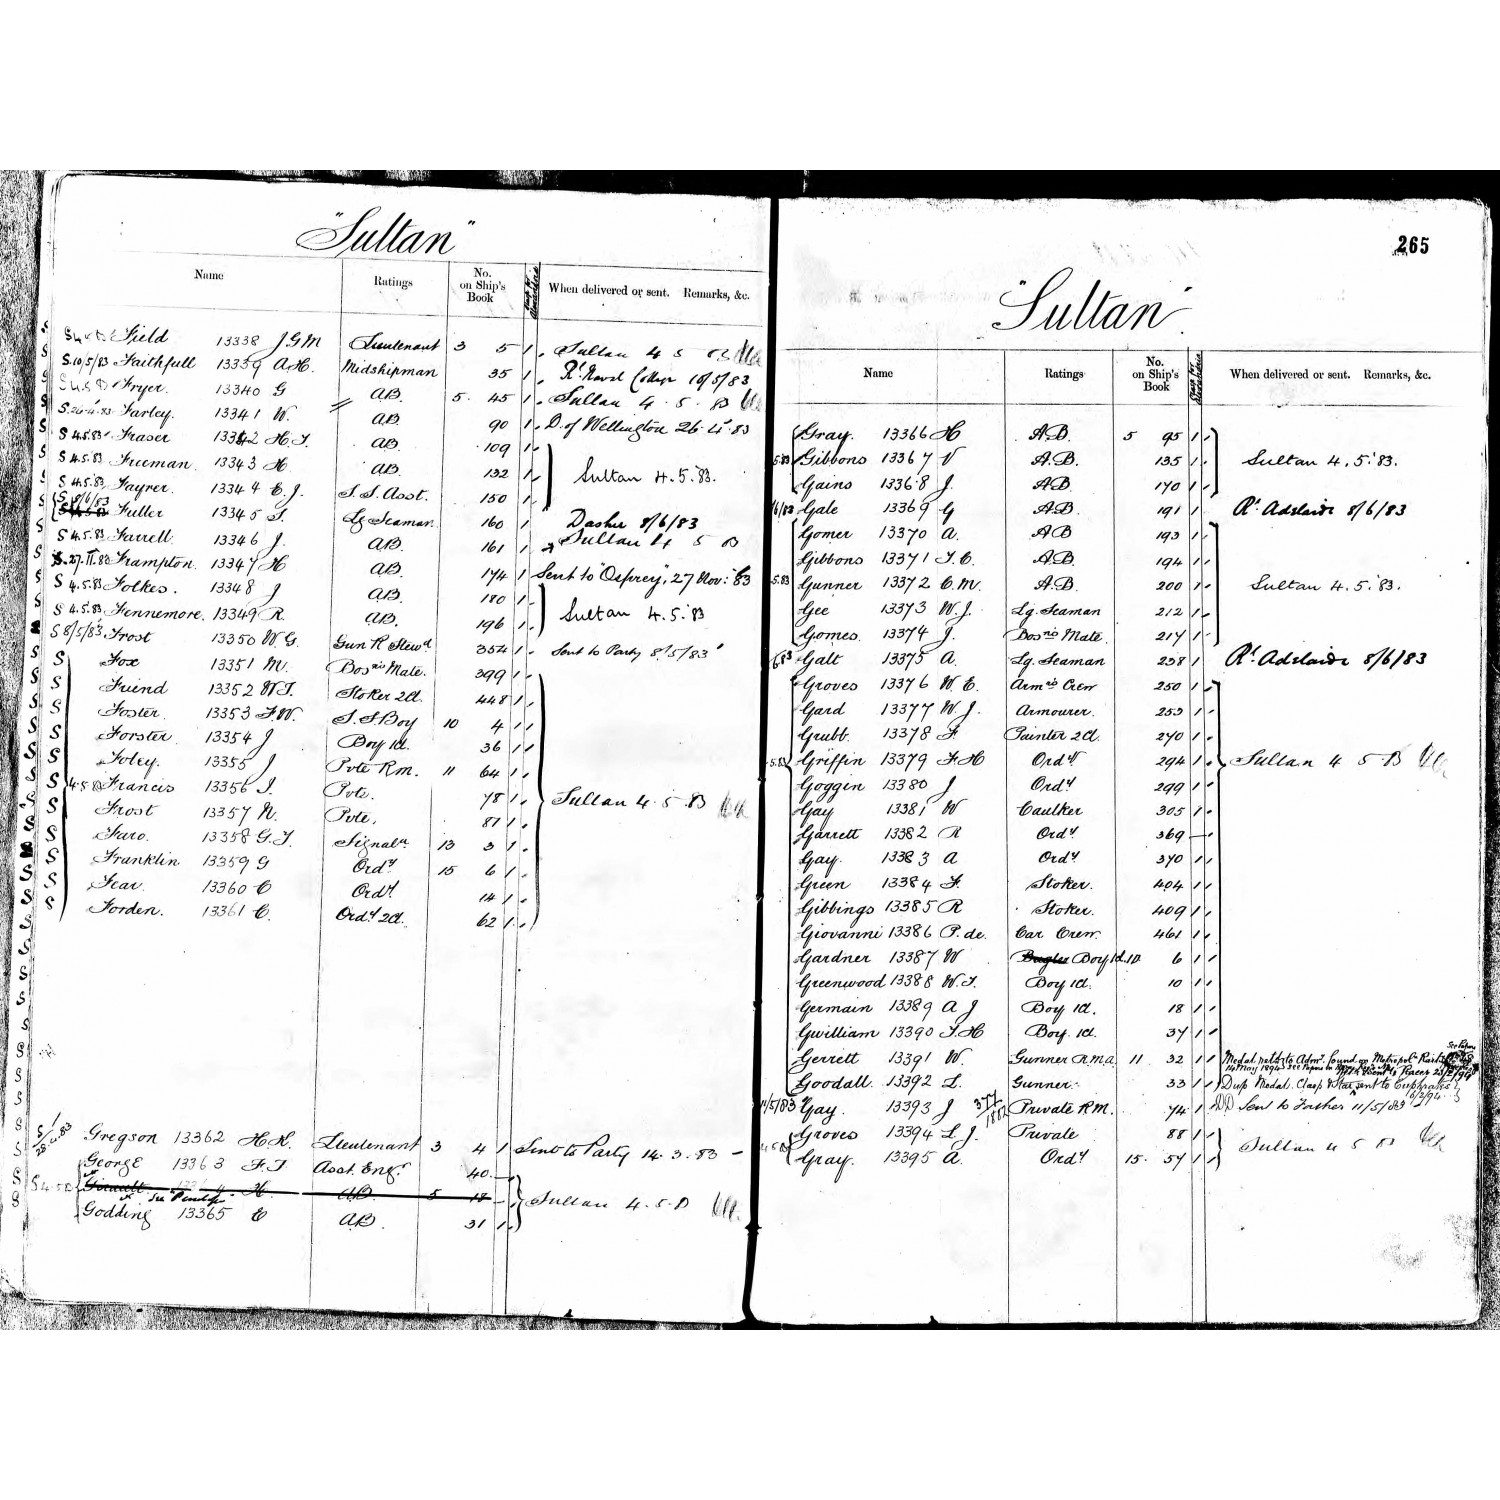 "Sultan"
Name Ratings No. on Ship's Book When delivered or sent. Remarks, &c.
Field 13338 J.G.M Lieutenant 3 5 1 Sultan 4 5 83
S.10/5/83 Faithfull 13339 A.H. Midshipman 35 1 Rl. Naval College 10/5/83
Fryer 13340 G AB. 5. 45 1 Sultan 4. 5. 83
S.26.4.83 Farley. 13341 W. AB. 90 1 D. of Wellington 26.4.83
S 4.5.83 Fraser 13342 H.T. AB. 109 1
S 4.5.83 Freeman. 13343 H. AB. 132 1 Sultan 4.5.83.
S 4.5.83 Fayrer. 13344 E.J. S.S. Asst. 150 1
S 8/6/83 Fuller 13345 T. Lg Seaman. 160 1 Dasher 8/6/83
S 4.5.83 Farrell. 13346 J. AB. 161 1 Sultan 4 5 83
S.27.11.83 Frampton. 13347 H AB. 174 1 Sent to "Osprey", 27 Nov: 83
S 4.5.83 Folkes. 13348 J AB. 180 1
S 4.5.83 Fennemore. 13349 R. AB. 196 1 Sultan 4.5.83
S 8/5/83 Frost 13350 W.G. Gun R Stewd 354 1 Sent to Party 8/5/83
S Fox 13351 M. Bosns Mate. 399 1
S Friend 13352 W.T. Stoker 2Cl. 448 1
S Foster. 13353 F.W. S.S Boy 10 4 1
S Forster. 13354 J Boy 1Cl. 36 1
S Foley. 13355 J Pvte R.m. 11 64 1
S 4.5.83 Francis 13356 T. Pvte. 78 1 Sultan 4.5.83
S Frost 13357 N. Pvte. 87 1
S Faro. 13358 G.T. Signaln 13 3 1
S Franklin 13359 G Ordy 15 6 1
S Fear. 13360 C Ordy 14 1
S Forden. 13361 C. Ordy 2Cl. 62 1
Gregson 13362 H.H. Lieutenant 3 4 1 Sent to Party 14.3.83
George 13363 F.T. Asst. Engr. 40
S 4.5.83 H. AB 5 18 Sultan 4.5.83
See "Penelope"
Godding 13365 E AB. 31 1
265
"Sultan"
Name Ratings No. on Ship's Book When delivered or sent. Remarks, &c.
Gray. 13366 H A.B. 5 95 1
Gibbons 13367 V A.B. 135 1 Sultan 4.5.83.
Gains 13368 J. AB. 170 1
Gale 13369 G AB. 191 1 Rl. Adelaide 8/6/83
Gomer 13370 A. AB 193 1
Gibbons 13371 T.C. AB. 194 1
Gunner 13372 E.M. A.B. 200 1 Sultan 4.5.83.
Gee 13373 W.J. Lg. Seaman 212 1
Gomes. 13374 J. Bosns Mate. 217 1
Galt 13375 A. Lg. Seaman 238 1 Rl. Adelaide 8/6/83
Groves 13376 W.E. Armrs Crew 250 1
Gard 13377 W.J. Armourer. 253 1
Grubb. 13378 F. Painter 2Cl. 270 1
Griffin 13379 F.H Ordy 294 1 Sultan 4 5 83
Goggin 13380 J Ordy 299 1
Gay 13381 W Caulker 305 1
Garrett 13382 R Ordy 369
Gay. 13383 A Ordy 370 1
Green 13384 F. Stoker. 404 1
Gibbings 13385 R Stoker. 409 1
Giovanni 13386 P. de. Car Crew. 461 1
Gardner 13387 W Bugler Boy 1Cl. 10 6 1
Greenwood 13388 W.T. Boy 1Cl. 10 1
Germain 13389 A J Boy 1Cl. 18 1
Gwilliam 13390 T.H Boy 1Cl. 37 1
Gerrett 13391 W. Gunner R.M.A 11 32 1 Medal retd. to Admy. found on Metropoln. Rail
14 May 1894
Goodall. 13392 L. Gunner. 33 1 Dup Medal Clasp & Star sent to Euphrates
11/5/83 Gay. 13393 J 377/1882 Private R.M. 74 1 DD Sent to Father 11/5/83
Groves 13394 L.J. Private 88 1
Gray. 13395 A. Ordy 15. 57 1 Sultan 4 5 83